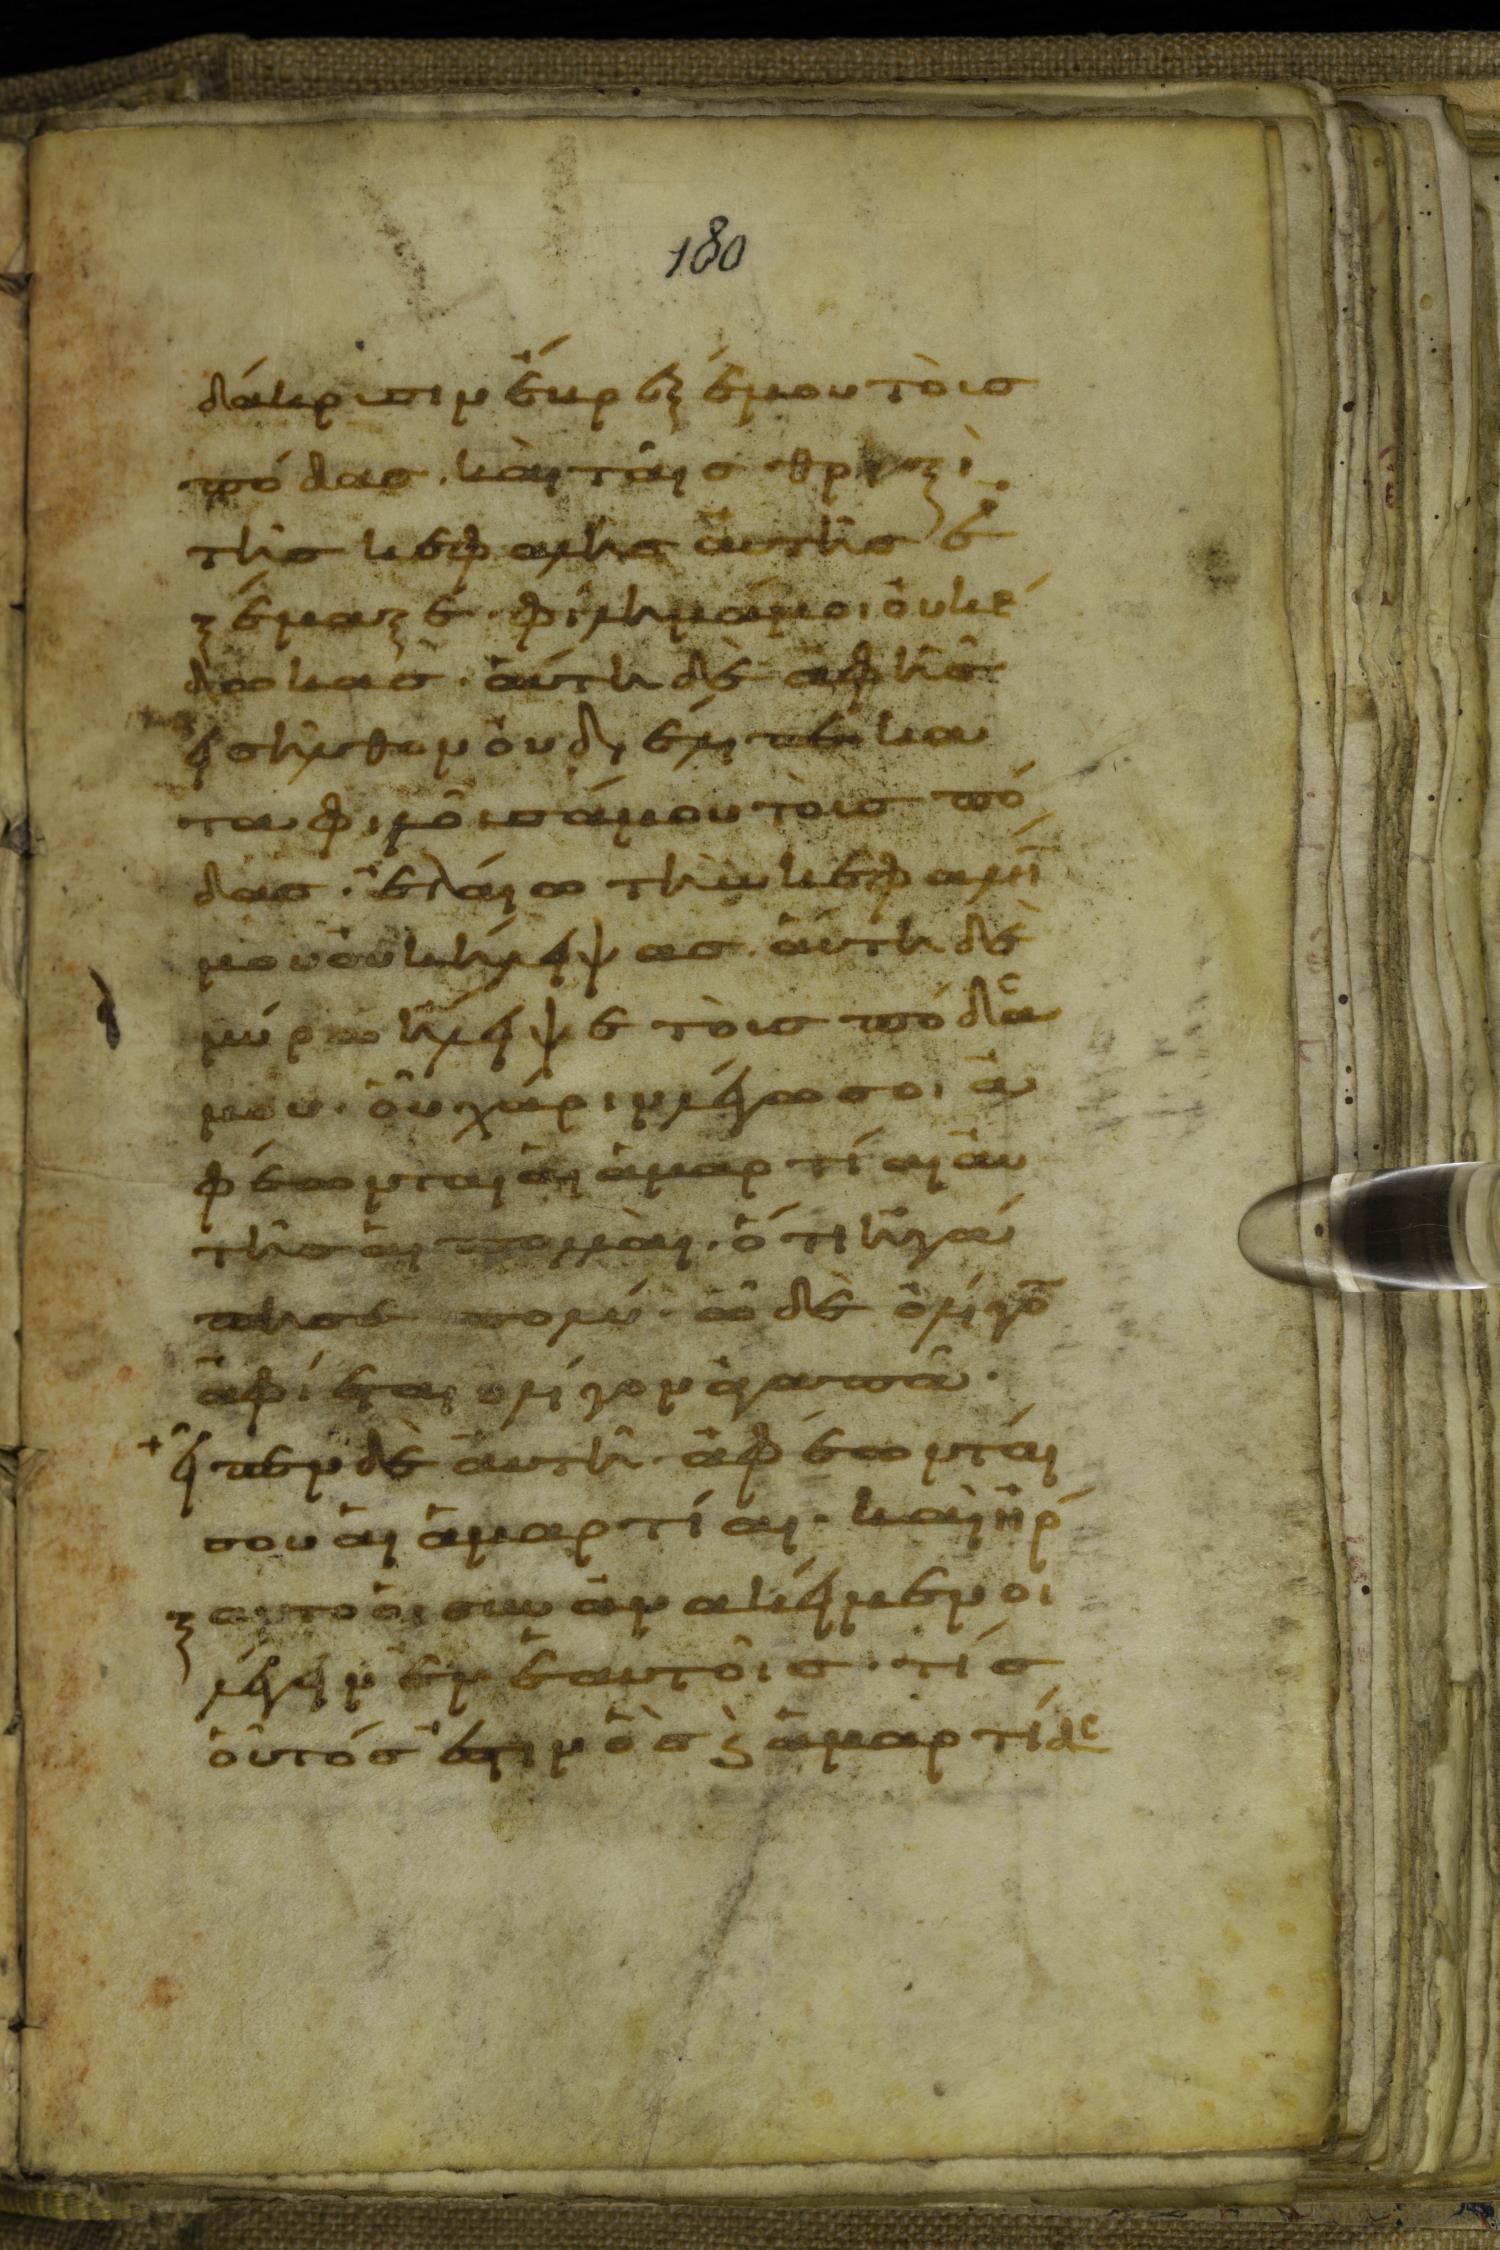 180
δάκρυσιν ἔβρεξέ μου τοὺς
πόδας. καὶ ταῖς θριξὶ
τῆς κεφαλῆς αὐτῆς ἐ
ξέμαξε. φίλημά μοι οὐκ ἔ
δωκας. αὕτη δὲ ἀφ ῆς
εἰσῆλθον οὐ διέλιπε κα
ταφιλοῦσά μου τοὺς πό
δας. ἐλαίω τὴν κεφαλήν
μου οὐκ ἤλειψας. αὕτη δὲ
μύρω ἤλειψε τοὺς πόδας
μου. οὗ χάριν λέγω σοι ἀ
φέωνται αἱ ἁμαρτίαι αὐ
τῆς αἱ πολλαὶ. ὅτι ἠγά
πησε πολύ. ὧ δὲ ὀλίγον
ἀφίεται ὀλίγον ἀγαπᾶ.
εἶπεν δὲ αὐτῆ ἀφέωνται
σου αἱ ἁμαρτίαι. καὶ ἤρ
ξαντο οἱ συνανακείμενοι
λέγειν ἐν ἑαυτοῖς. τίς
οὗτός ἐστιν ὃς ϗ ἁμαρτίας